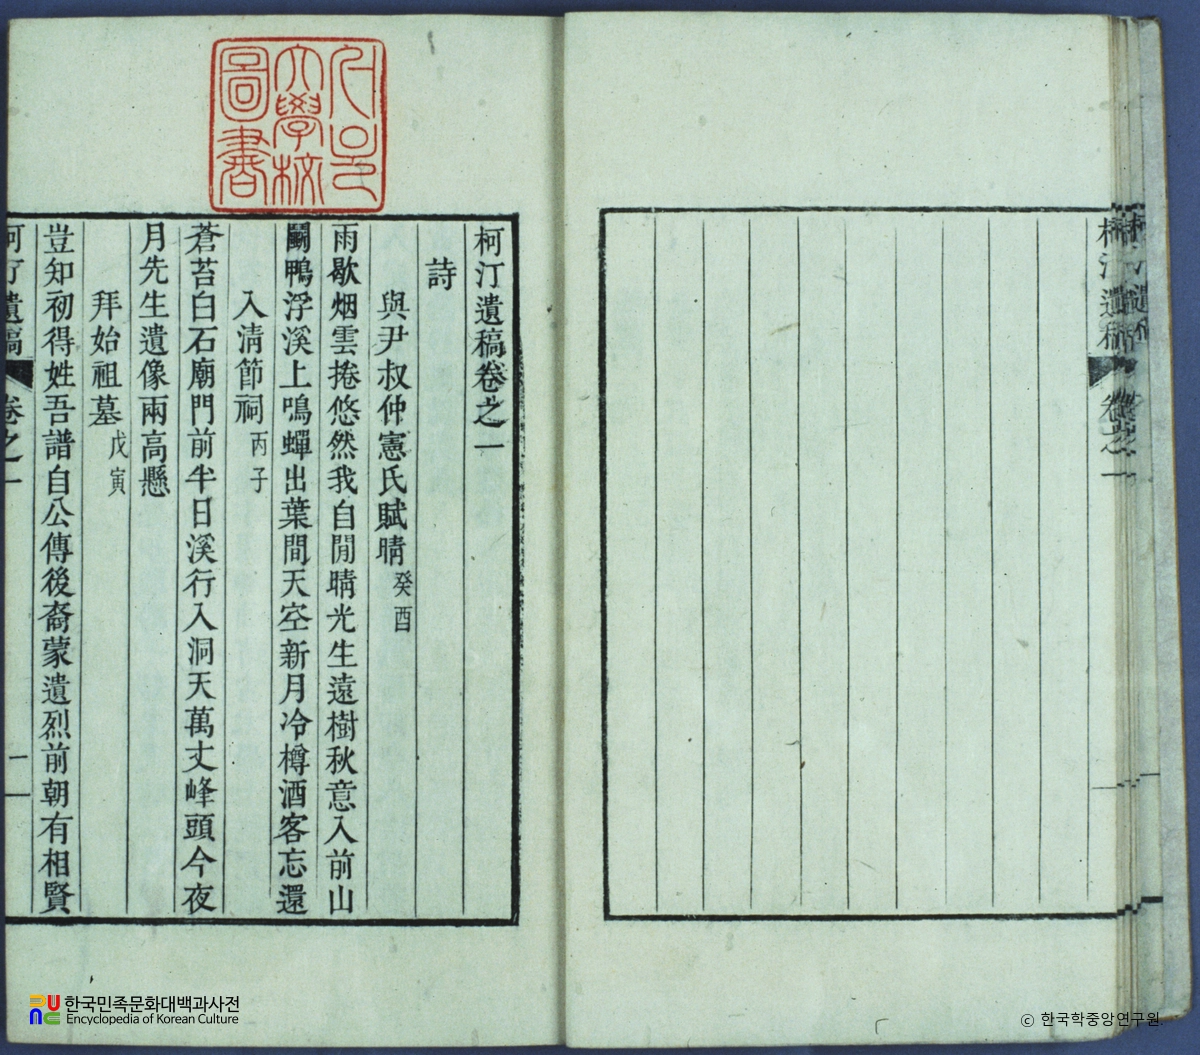 柯汀遺稿卷之一
詩
與尹叔仲憲氏賦晴癸酉
雨歇烟雲捲悠然我自閒晴光生遠樹秋意入前山
鬭鴨浮溪上鳴蟬出葉間天空新月冷樽酒客忘還
入清節祠丙子
蒼苔白石廟門前半日溪行入洞天萬丈峰頭今夜
月先生遺像兩高懸
拜始祖墓戊寅
豈知初得姓吾譜自公傳後裔蒙遺烈前朝有相賢
柯汀遺稿 卷之一 一
柯汀遺稿 卷之一
大學校
圖書
한국민족문화대백과사전
Encyclopedia of Korean Culture
ⓒ 한국학중앙연구원